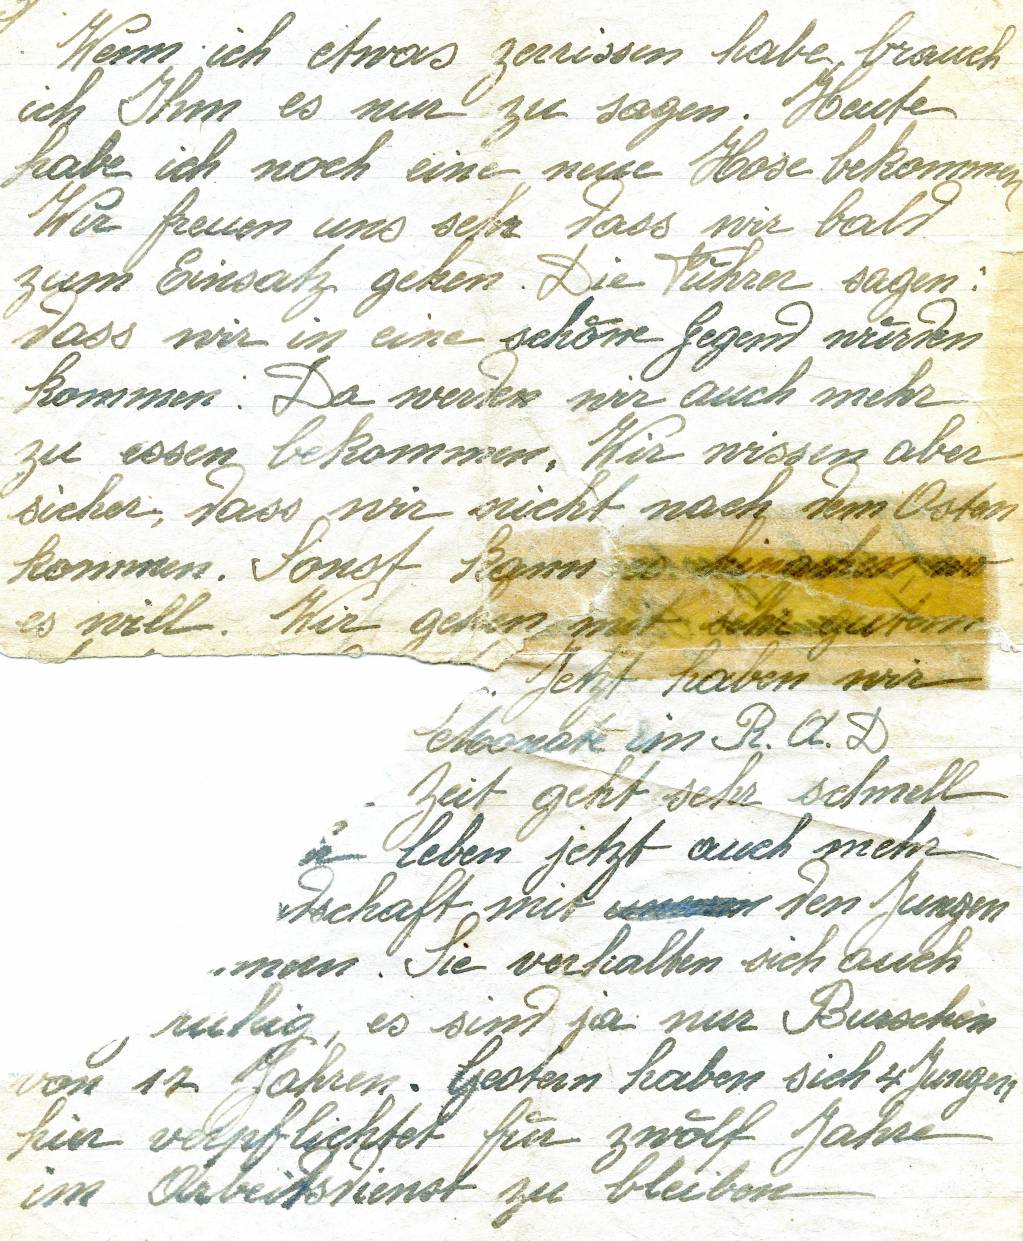 Wenn ich etwas zerrissen habe, brauch
ich Ihm es nur zu sagen. Heute
habe ich noch eine neue Hose bekommen
Wir freuen uns sehr dass wir bald
zum Einsatz gehen. Die Führer sagen:
dass wir in eine schöne Gegend würden
kommen. Da werden wir auch mehr
zu essen bekommen. Wir wissen aber
sicher, dass wir nicht nach dem Osten
kommen. Sonst kann es hingehen wo
es will. Wir gehen mit sehr gutem
Jetzt haben wir
Monate im R. A. D
Zeit geht sehr schnell
leben jetzt auch mehr
dschaft mit den Jungen
men. Sie verhalten sich auch
ruhig, es sind ja nur Burschen
von 17 Jahren. Gestern haben sich 4 Jungen
hier verpflichtet für zwölf Jahre
im Arbeitsdienst zu bleiben